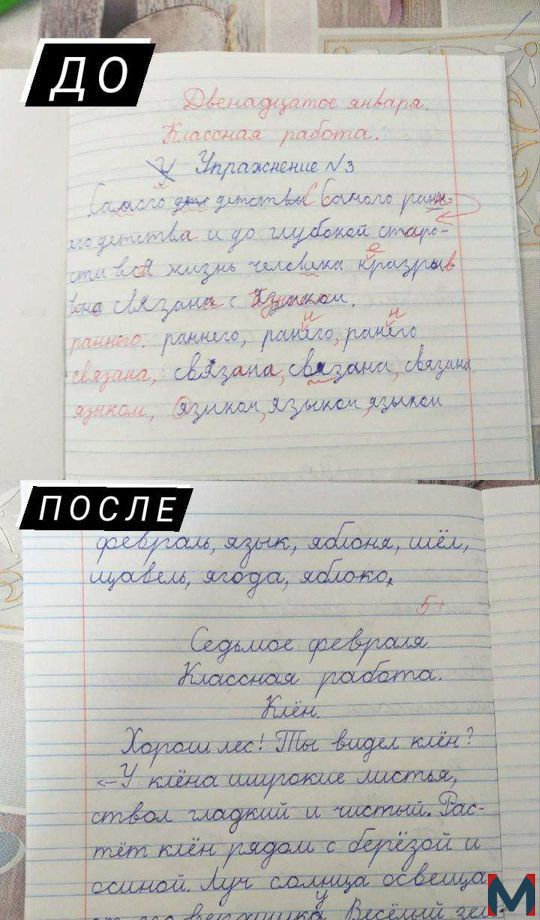 ДО
Двенадцатое января.
Классная работа.
У Упражнение №3
Самого дет детствы С самого ранн-
его детства и до глубокой старо-
сти вся жизнь человека кразрыв
вно связана с языком.
раннего. раннего, ранего, ранего
связана, связана, связана, связана
языком, языком, языком, языком
ПОСЛЕ
февраль, язык, яблоня, шёл,
щавель, ягода, яблоко.
5+
Седьмое февраля
Классная работа.
Клён.
Хорош лес! Ты видел клён?
У клёна широкие листья,
ствол гладкий и чистый. Рас-
тёт клён рядом с берёзой и
осиной. Луч солнца освеща
ет его верхушку. Весёлый зе
М